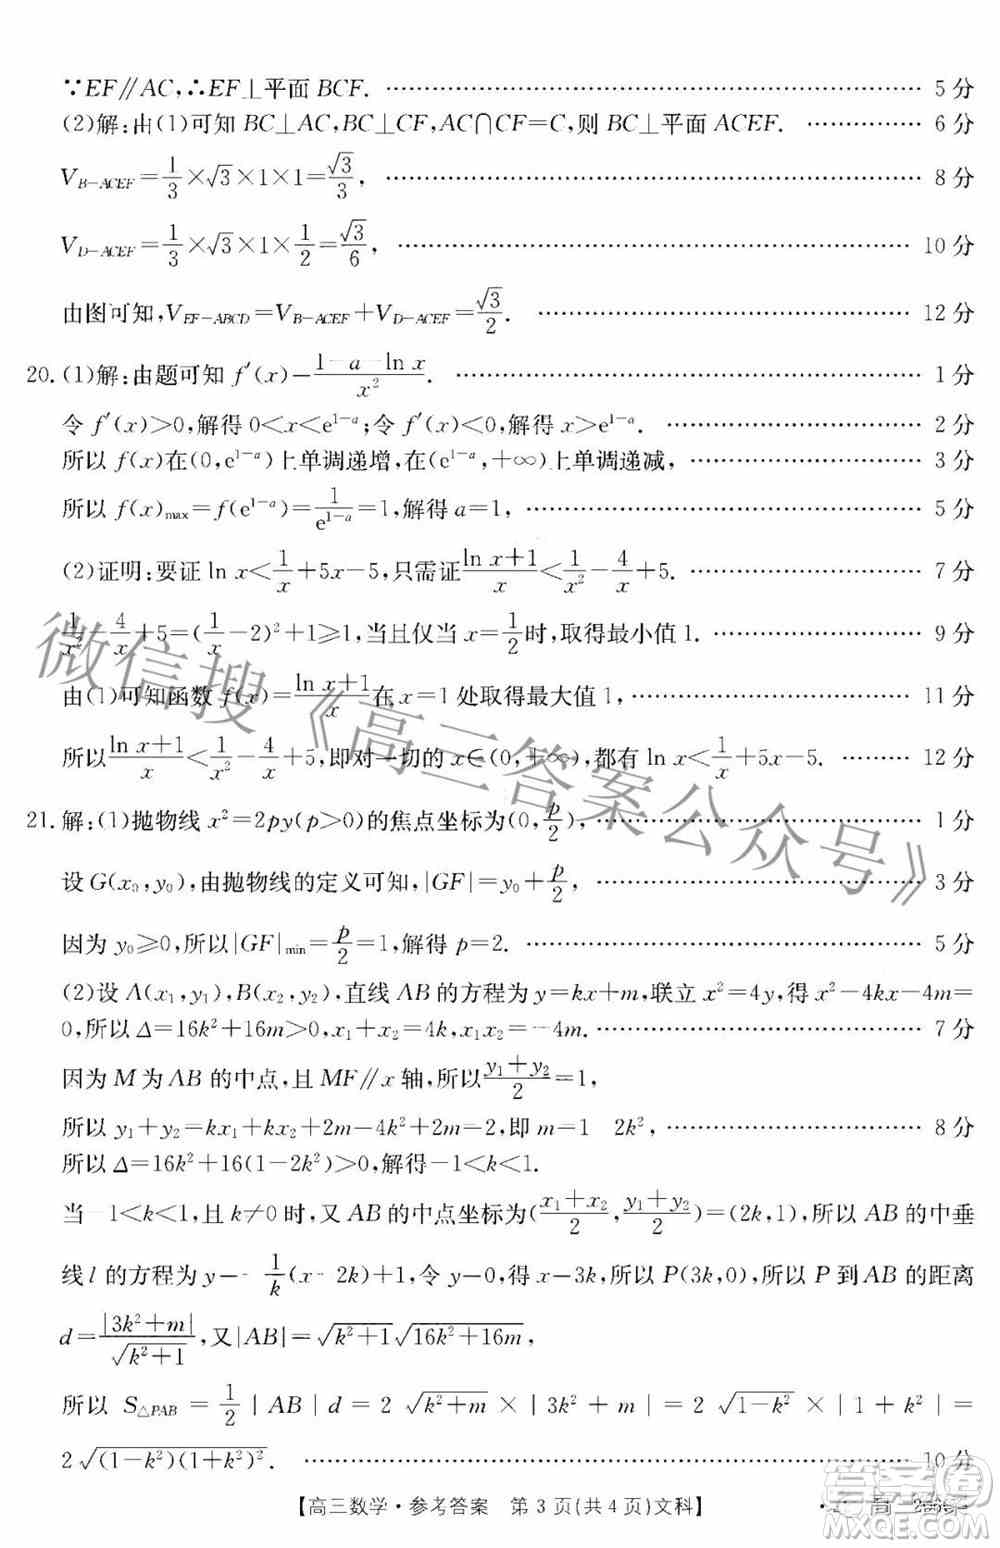 ∵EF∥AC,∴EF⊥平面 BCF. …… 5 分
(2)解:由(1)可知 BC⊥AC,BC⊥CF,AC∩CF=C,则 BC⊥平面 ACEF. …… 6 分
V_{B-ACEF}=\frac{1}{3}×√3×1×1=\frac{√3}{3}, …… 8 分
V_{D-ACEF}=\frac{1}{3}×√3×1×\frac{1}{2}=\frac{√3}{6}, …… 10 分
由图可知,V_{EF-ABCD}=V_{B-ACEF}+V_{D-ACEF}=\frac{√3}{2}. …… 12 分
20.(1)解:由题可知 f′(x)=\frac{1-a-ln x}{x²}. …… 1 分
令 f′(x)>0,解得 0<x<e^{1-a};令 f′(x)<0,解得 x>e^{1-a}. …… 2 分
所以 f(x)在(0,e^{1-a})上单调递增,在(e^{1-a},+∞)上单调递减, …… 3 分
所以 f(x)_{max}=f(e^{1-a})=\frac{1}{e^{1-a}}=1,解得 a=1, …… 5 分
(2)证明:要证 ln x<\frac{1}{x}+5x-5,只需证\frac{ln x+1}{x}<\frac{1}{x²}-\frac{4}{x}+5. …… 7 分
\frac{1}{x²}-\frac{4}{x}+5=(\frac{1}{x}-2)²+1≥1,当且仅当 x=\frac{1}{2}时,取得最小值 1. …… 9 分
由(1)可知函数 f(x)=\frac{ln x+1}{x}在 x=1 处取得最大值 1, …… 11 分
所以\frac{ln x+1}{x}<\frac{1}{x²}-\frac{4}{x}+5,即对一切的 x∈(0,+∞),都有 ln x<\frac{1}{x}+5x-5. …… 12 分
21.解:(1)抛物线 x²=2py(p>0)的焦点坐标为(0,\frac{p}{2}), …… 1 分
设 G(x₀,y₀),由抛物线的定义可知,|GF|=y₀+\frac{p}{2}, …… 3 分
因为 y₀≥0,所以|GF|_{min}=\frac{p}{2}=1,解得 p=2. …… 5 分
(2)设 A(x₁,y₁),B(x₂,y₂),直线 AB 的方程为 y=kx+m,联立 x²=4y,得 x²-4kx-4m=
0,所以 Δ=16k²+16m>0,x₁+x₂=4k,x₁x₂=-4m. …… 7 分
因为 M 为 AB 的中点,且 MF∥x 轴,所以\frac{y₁+y₂}{2}=1,
所以 y₁+y₂=kx₁+kx₂+2m=4k²+2m=2,即 m=1 2k², …… 8 分
所以 Δ=16k²+16(1-2k²)>0,解得-1<k<1.
当-1<k<1,且 k≠0 时,又 AB 的中点坐标为(\frac{x₁+x₂}{2},\frac{y₁+y₂}{2})=(2k,1),所以 AB 的中垂
线 l 的方程为 y=-\frac{1}{k}(x-2k)+1,令 y=0,得 x=3k,所以 P(3k,0),所以 P 到AB 的距离
d=\frac{|3k²+m|}{\sqrt{k²+1}},又|AB|=\sqrt{k²+1}\sqrt{16k²+16m},
所以 S_{△PAB}=\frac{1}{2}|AB|d=2\sqrt{k²+m}×|3k²+m|=2\sqrt{1-k²}×|1+k²|=
2\sqrt{(1-k²)(1+k²)²}. …… 10 分
【高三数学·参考答案 第 3 页(共 4 页)文科】
微信搜《高三答案公众号》